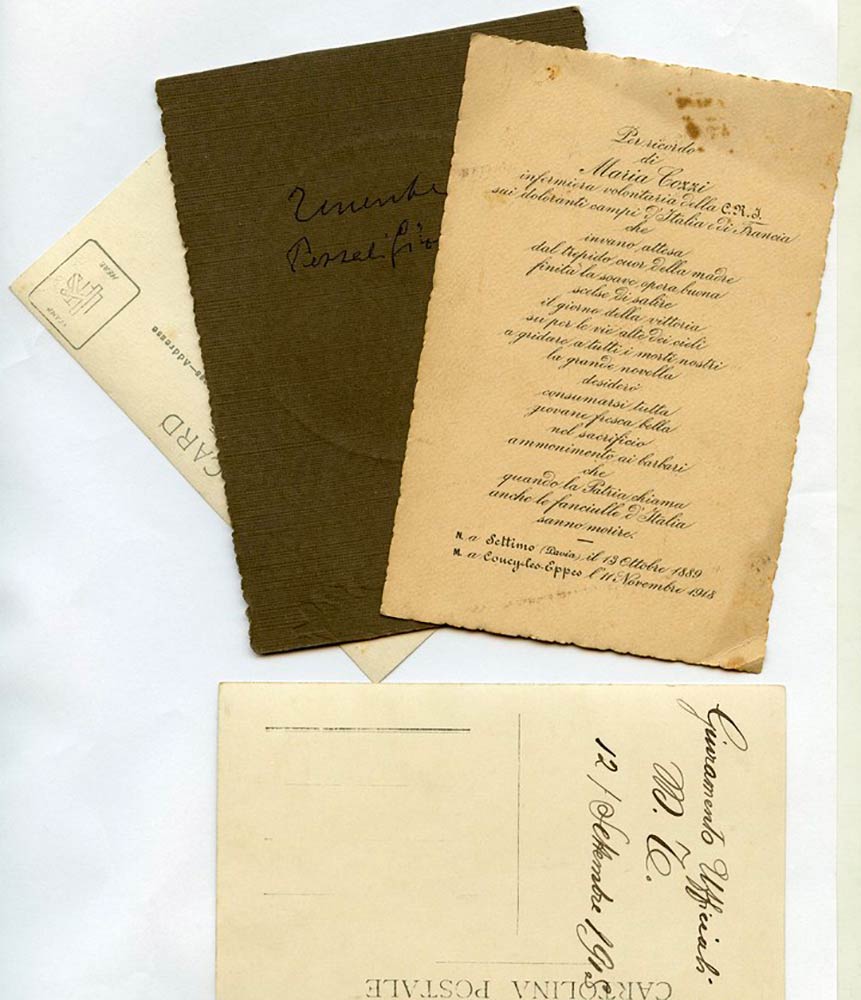 Tenente
Per ricordo
di
Maria Cozzi
infermiera volontaria della C.R.I.
sui doloranti campi d'Italia e di Francia
che
invano attesa
dal trepido cuor della madre
finita la soave opera buona
scelse di salire
il giorno della vittoria
su per le vie alte dei cieli
a gridare a tutti i morti nostri
la grande novella
desiderò
consumarsi tutta
giovane fresca bella
nel sacrificio
ammonimento ai barbari
che
quando la Patria chiama
anche le fanciulle d'Italia
sanno morire.
N. a Settimo (Pavia) il 13 Ottobre 1889
M. a Coucy-les-Eppes l'11 Novembre 1918
STAMP
HERE
Address
CARD
Giuramento Ufficiali
M. T.
12/Settembre
CARTOLINA POSTALE